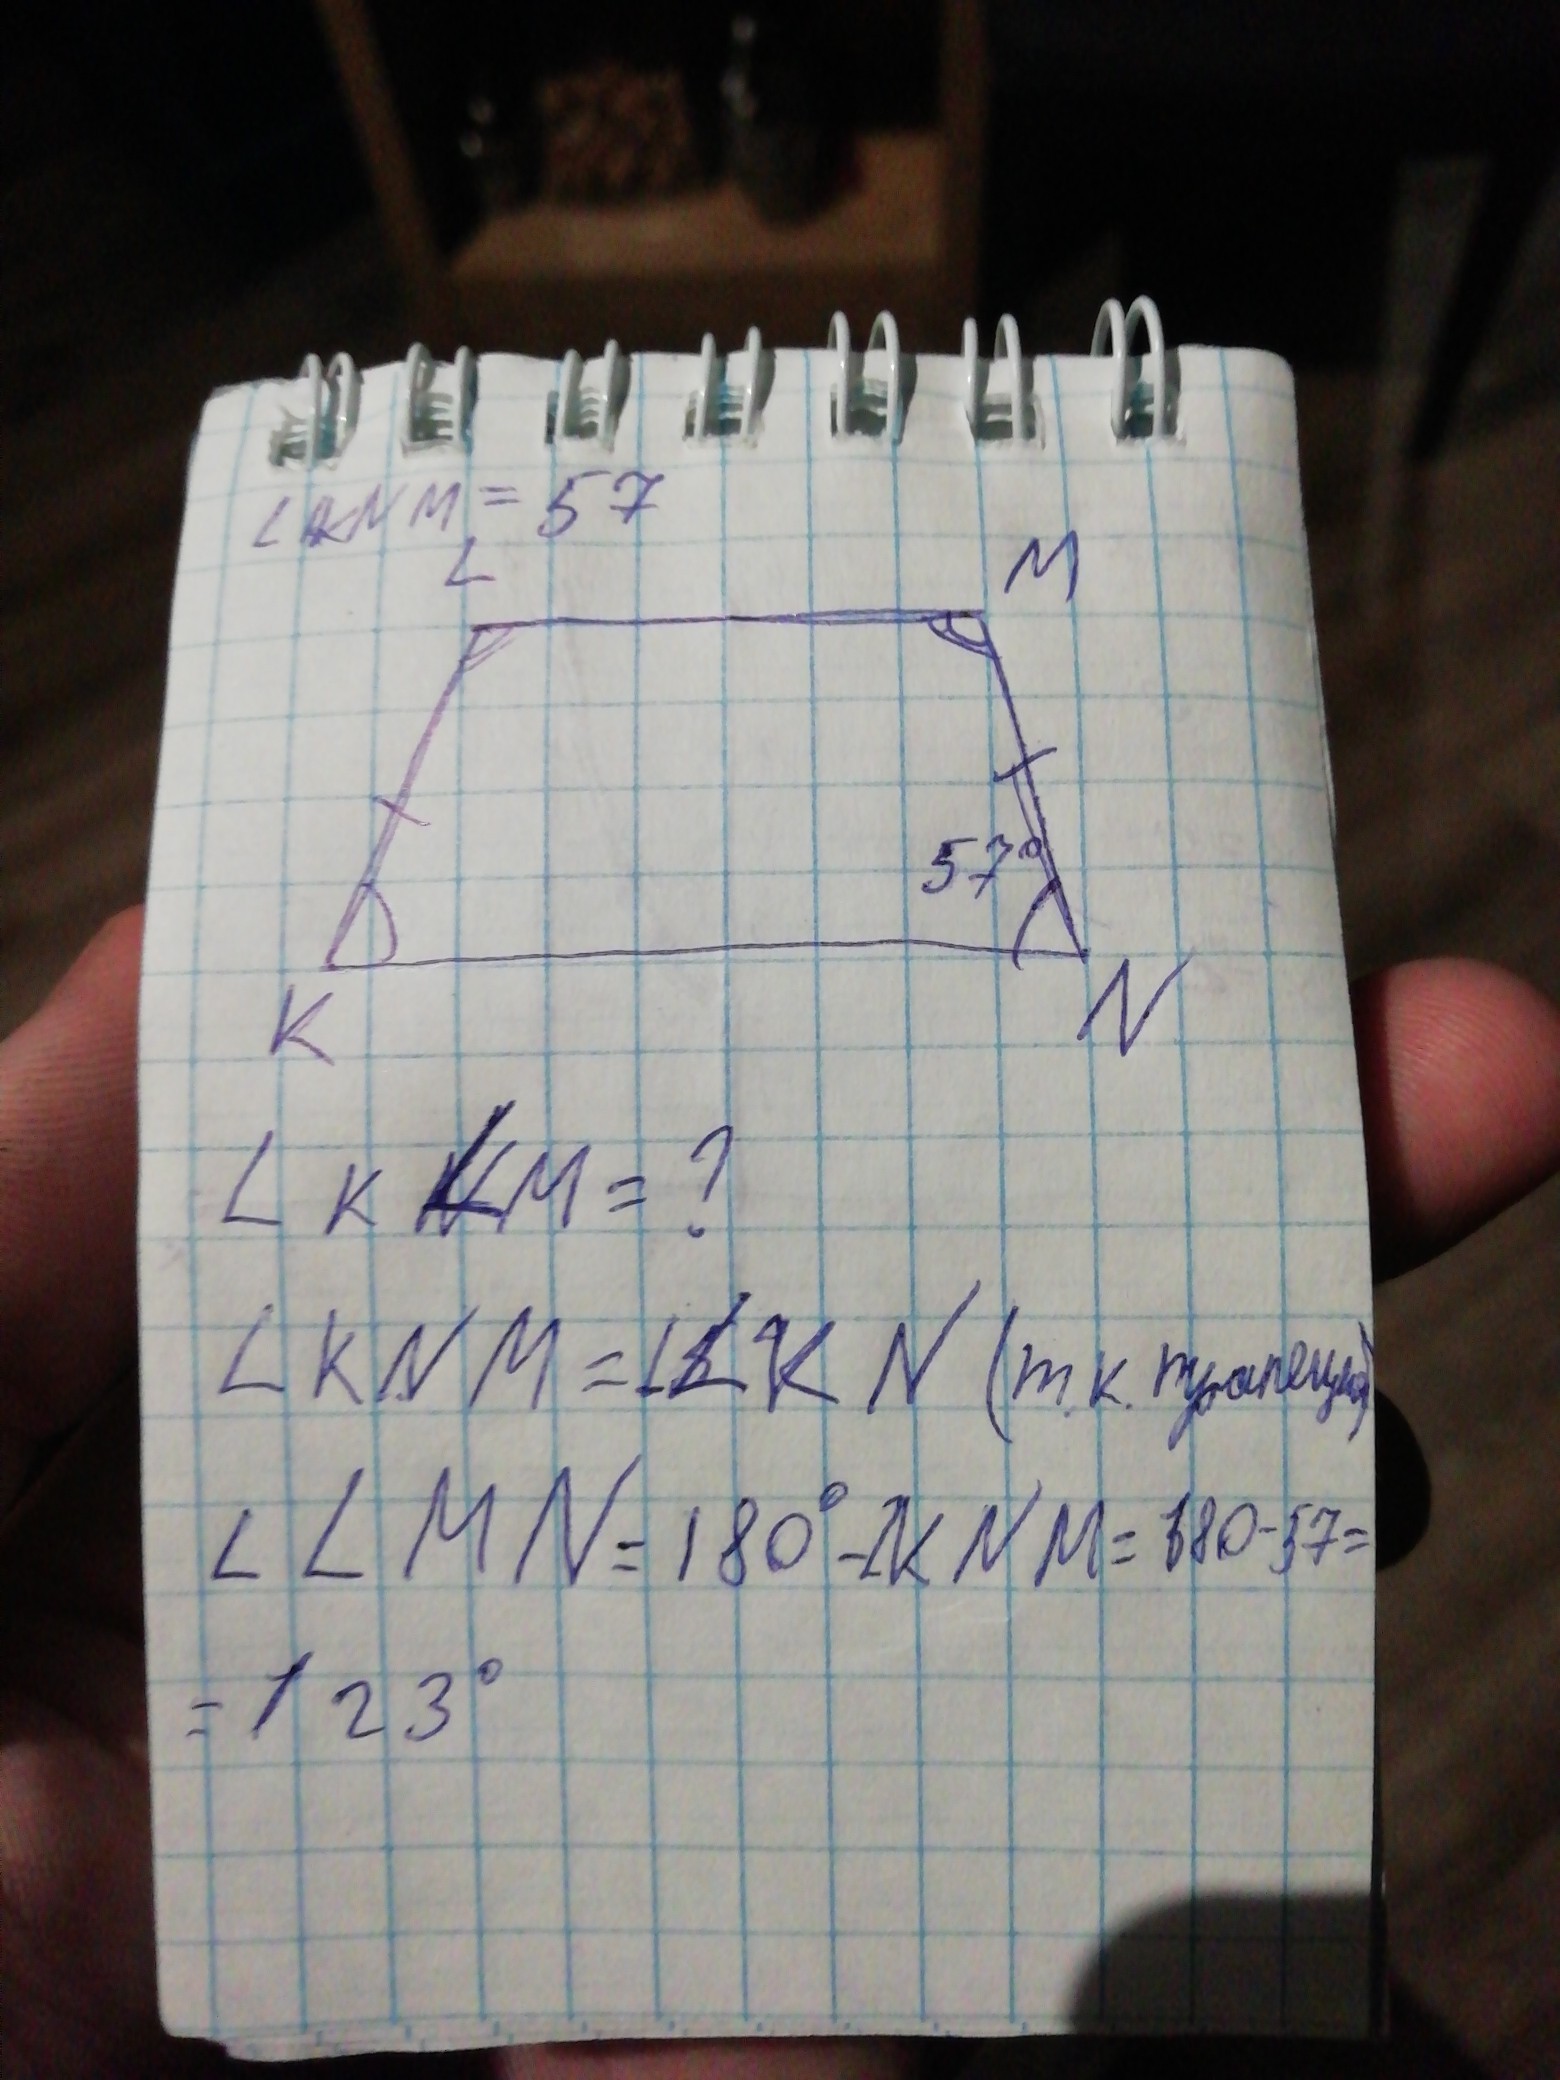 ∠KNM = 57
L M
57°
K N
∠KLM = ?
∠KNM = ∠LKN (т.к. трапеция)
∠LMN = 180° - ∠KNM = 180-57=
= 123°